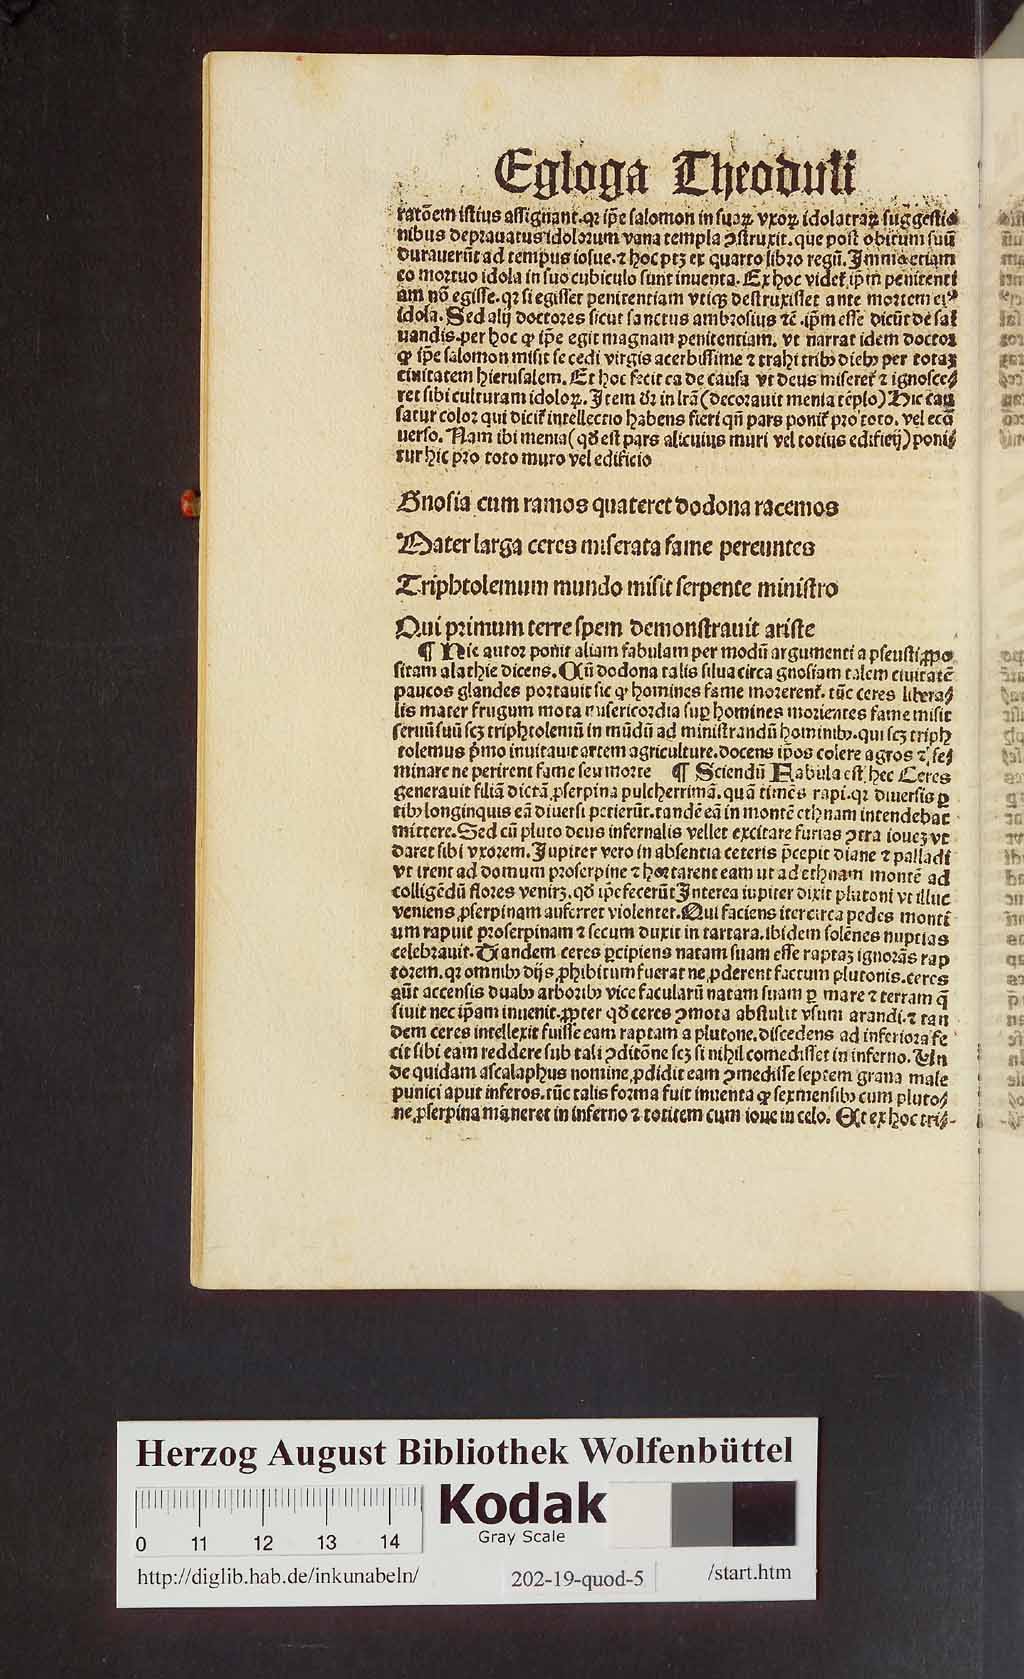 Egloga Theoduli
ratōem istius assignant. qꝛ ip̄e salomon in suaꝝ vxoꝝ idolatraꝝ suggestio
nibus deprauatus idolorum vana templa ꝯstruxit. que post obitum suū
durauerūt ad tempus iosue. ⁊ hoc ptꝫ ex quarto libro regū. Immo etiam
eo mortuo idola in suo cubiculo sunt inuenta. Ex hoc videt᷑ ip̄m penitenti
am nō egisse. qꝛ si egisset penitentiam vtiqꝫ destruxisset ante mortem eiꝰ
idola. Sed alij doctores sicut sanctus ambrosius ⁊c̄. ip̄m esse dicūt de sal
uandis. per hoc ꝙ ip̄e egit magnam penitentiam. vt narrat idem doctor
ꝙ ip̄e salomon misit se cedi virgis acerbissime ⁊ trahi tribꝫ diebꝫ per totaꝫ
ciuitatem hierusalem. Et hoc fecit ea de causa vt deus miseret᷑ ⁊ ignosce⸗
ret sibi culturam idoloꝝ. Item dr̄ in lr̄a (decorauit menia tēplo) Hic cau
satur color qui dicit᷑ intellectio habens fieri qn̄ pars ponit᷑ pro toto. vel ecō
uerso. Nam ibi menia (qd̄ est pars alicuius muri vel totius edificij) poni⸗
tur hic pro toto muro vel edificio
Gnosia cum ramos quateret dodona racemos
Mater larga ceres miserata fame pereuntes
Triphtolemum mundo misit serpente ministro
Qui primum terre spem demonstrauit ariste
¶ Hic autor ponit aliam fabulam per modū argumenti a pseusti ꝓpo
sitam alathie dicens. Qn̄ dodona talis silua circa gnosiam talem ciuitatē
paucos glandes portauit sic ꝙ homines fame morerent᷑. tūc ceres libera⸗
lis mater frugum mota misericordia suꝑ homines morientes fame misit
seruū suū scꝫ triphtolemū in mūdū ad ministrandū hominibꝫ. qui scꝫ triph
tolemus pͥmo inuitauit artem agriculture. docens ip̄os colere agros ⁊ se⸗
minare ne perirent fame seu morte ¶ Sciendū Fabula est hec Ceres
generauit filiā dictā ꝓserpina pulcherrimā. quā timēs rapi. qꝛ diuersis ꝑ
tibꝫ longinquis eā diuersi petierūt. tandē eā in montē ethnam intendebat
mittere. Sed cū pluto deus infernalis vellet excitare furias ꝯtra iouēꝫ vt
daret sibi vxorem. Jupiter vero in absentia ceteris p̄cepit diane ⁊ palladi
vt irent ad domum proserpine ⁊ hortarent eam ut ad ethnam montē ad
colligēdū flores venirꝫ. qd̄ ip̄e fecerūt Interea iupiter dixit plutoni vt illuc
veniens ꝓserpinam auferret violenter. Qui faciens iter circa pedes monti
um rapuit proserpinam ⁊ secum duxit in tartara. ibidem solēnes nuptias
celebrauit. Tandem ceres ꝑcipiens natam suam esse raptaꝫ ignorās rap
torem. qꝛ omnibꝫ dijs ꝓhibitum fuerat ne ꝓderent factum plutonis. ceres
aūt accensis duabꝫ arboribꝫ vice facularū natam suam ꝑ mare ⁊ terram q̄
siuit nec ip̄am inuenit. ꝓpter qd̄ ceres ꝯmota abstulit vsum arandi. ⁊ tan
dem ceres intellexit fuisse eam raptam a plutone. discedens ad inferiora fe
cit sibi eam reddere sub tali ꝯditōne scꝫ si nihil comedisset in inferno. Un
de quidam ascalaphus nomine ꝓdidit eam ꝯmedisse septem grana male
punici aput inferos. tūc talis forma fuit inuenta ꝙ sex mensibꝫ cum pluto⸗
ne ꝓserpina maneret in inferno ⁊ totitem cum ioue in celo. Et ex hoc tri⸗
Herzog August Bibliothek Wolfenbüttel
Kodak
Gray Scale
0 11 12 13 14
http://diglib.hab.de/inkunabeln/ 202-19-quod-5 /start.htm